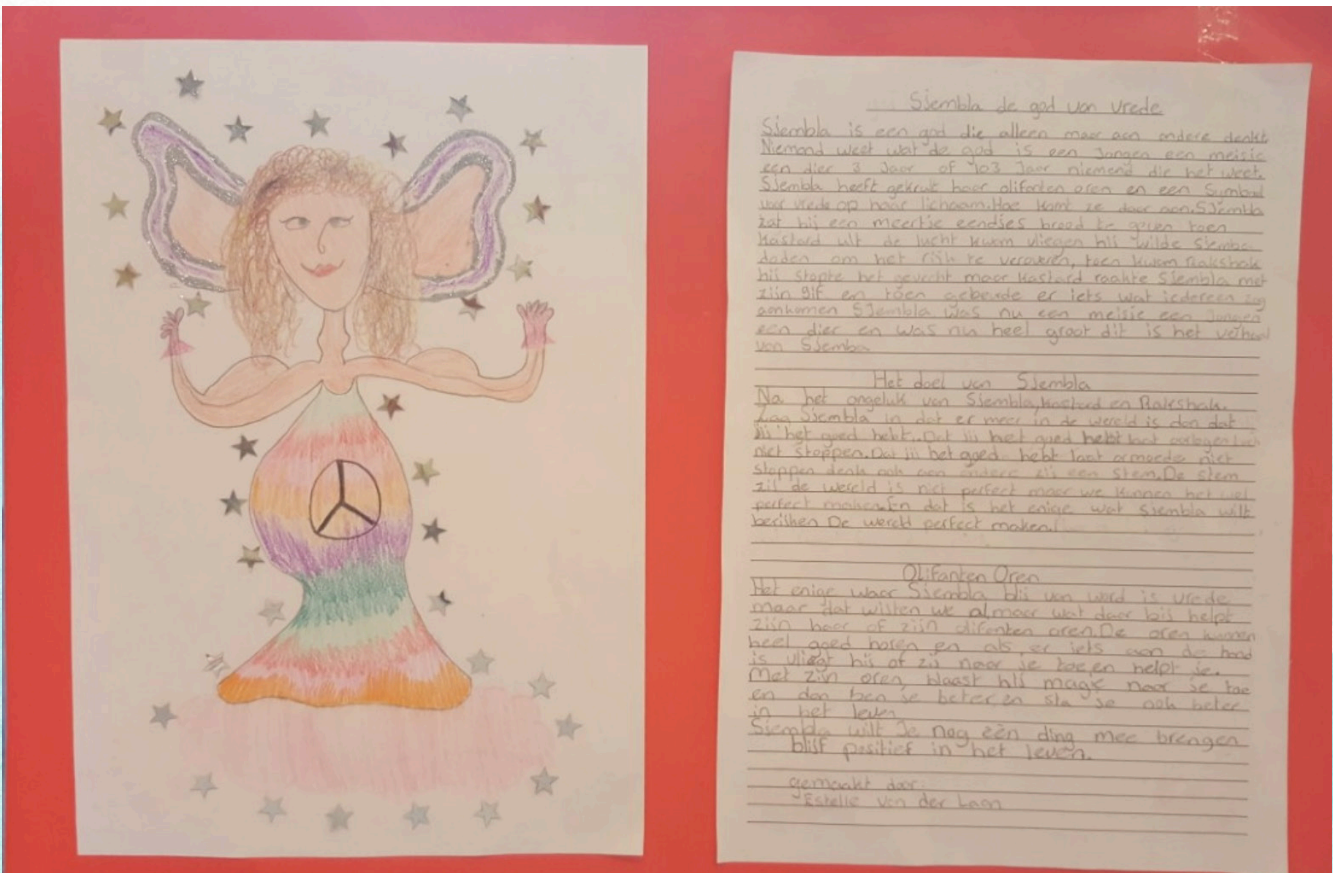 Sjembla de god van vrede
Sjembla is een god die alleen maar aan andere denkt
Niemand weet wat de god is een Jongen een meisje
een dier 3 Jaar of 103 Jaar niemend die het weet.
Sjembla heeft gekrult haar olifanten oren en een Symbool
voor vrede op haar lichaam. Hoe komt ze daar aan. Sjembla
zat bij een meertje eendjes brood te geven toen
Kastard uit de lucht kwam vliegen hij wilde Sjembla
doden om het rijk te veroveren, toen kwam Rakshak
hij stopte het gevecht maar Kastard raakte Sjembla met
zijn gif en toen gebeurde er iets wat iedereen zag
aankomen Sjembla was nu een meisje een Jongen
een dier en was nu heel groot dit is het verhaal
van Sjemba
Het doel van Sjembla
Na het ongeluk van Sjembla, Kastard en Rakshak.
Zag Sjembla in dat er meer in de wereld is dan dat
jij het goed hebt. Dat jij heet goed hebt laat oorlogen
niet stoppen. Dat jij het goed hebt laat armoede niet
stoppen denk ook aan andere zij een stem. De stem
zij de wereld is niet perfect maar we kunnen het wel
perfect maken. En dat is het enige wat Sjembla wilt
beriken De wereld perfect maken!
Olifanten Oren
Het enige waar Sjembla blij van word is vrede
maar dat wisten we al maar wat daar bij helpt
zijn haar of zijn olifanten oren. De oren kunnen
heel goed horen en als er iets aan de hand
is vliegt hij of zij naar je toe en helpt je.
Met zijn oren blaast hij magie naar je toe
en dan ben je beter en sta je ook beter
in het leven
Sjembla wilt Je nog één ding mee brengen
blijf positief in het leven.
gemaakt door:
Estelle van der Laan